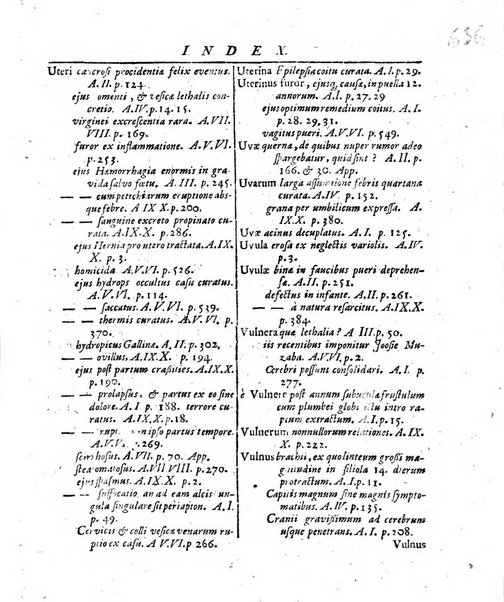 636
INDEX.
Uteri cancrosi procidentiæ felix eventus.
A.II. p. 124.
ejus omenti, & vesicæ lethalis con-
cretio. A.IV. p. 14. 15.
virginei excrescentia rara. A.VII.
VIII. p. 169.
furor ex inflammatione. A.V.VI.
p. 253.
ejus Hæmorrhagia enormis in gra-
vida salvo fœtu. A.I. p. 245.
— — cum petechiarum eruptione abs-
que febre. A IX X. p. 200.
— — sanguine excreto propinato cu-
rata. A.IX.X. p. 286.
ejus Hernia pro utero tractata. A.IX.
X. p. 3.
homicida A.V.VI. p. 526.
ejus hydrops occultus casu curatus.
A.V.VI. p. 114.
— — saccatus. A.V.VI. p. 539.
— — thermis curatus. A.V.VI. p.
370.
hydropicus Gallinæ. A.II. p. 302.
— — ovillus. A.IX.X. p. 194.
ejus post partum crassities. A.IX.X.
p. 190.
— — prolapsus, & partus ex eo sine
dolore. A.I. p. 188. terrore cu-
ratus. A.IX.X. p. 18.
— — in ipso partus tempore.
A.V.VI. p. 269.
scirrhosus. A.VII. p. 70. App.
steatomatosus. A.VII VIII. p. 270.
ejus spasmus. A.IX.X. p. 2.
— — suffocatio, an ad eam alcis un-
gula singulare sit periapton. A.I.
p. 49.
Cervicis & colli vesicæ venarum ru-
ptio ex casu. A V.VI. p 266.
Uterina Epilepsia coitu curata. A.I. p. 29.
Uterinus furor, ejusq; causæ, in puella 12.
annorum. A.I. p. 27. 29
ejus optimum remedium coitus. A.I.
p. 28. 29. 31.
vagitus pueri. A.V.VI. p. 549.
Uvæ quædam, de quibus nuper rumor adeo
spargebatur, quid sint? A.II. p.
166. & 30. App.
Uvarum larga assumtione febris quartana
curata. A.IV. p. 152.
grana per umbilicum expressa. A.
IX.X. p. 380.
Uvæ acinus decuplatus. A.I. p. 119.
Uvula erosa ex neglectis variolis. A.IV.
p. 3.
Uvulæ binæ in faucibus pueri deprehen-
sæ. A.II. p. 251.
defectus in infante. A.II. p. 261.
— — à natura resarcitus. A.IX.X.
p. 384.
Vulnera quæ lethalia? A III. p. 50.
iis recentibus imponitur Joosie Mu-
zaba. A.V.VI. p. 2.
Cerebri possunt consolidari. A.I. p.
277.
è Vulnere post annum subuculæ frustulum
cum plumbei globi illu intro ra-
ptum extractum. A.I. p. 51.
Vulnerum nonnullorum relatio. A.IX.
X. p. 222.
Vulnus brachii, ex quo linteum grossi ma-
gnitudine in filiola 14. dierum
protractum. A.I. p. 51.
Capitis magnum sine magnis sympto-
matibus. A.IV. p. 135.
Cranii gravissimum ad cerebrum
usque penetrans. A.I. p. 208.
Vulnus